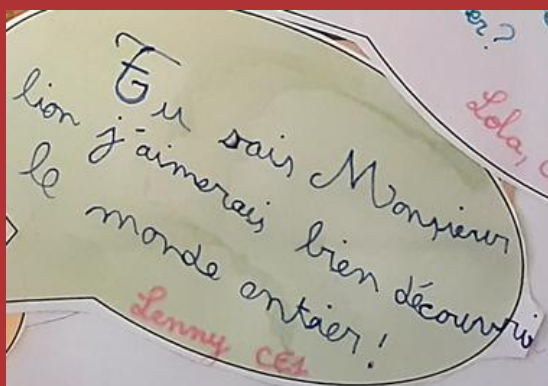 Tu sais Monsieur
lion j'aimerais bien découvrir
le monde entier!
Lenny CE1
er?
Lola, C